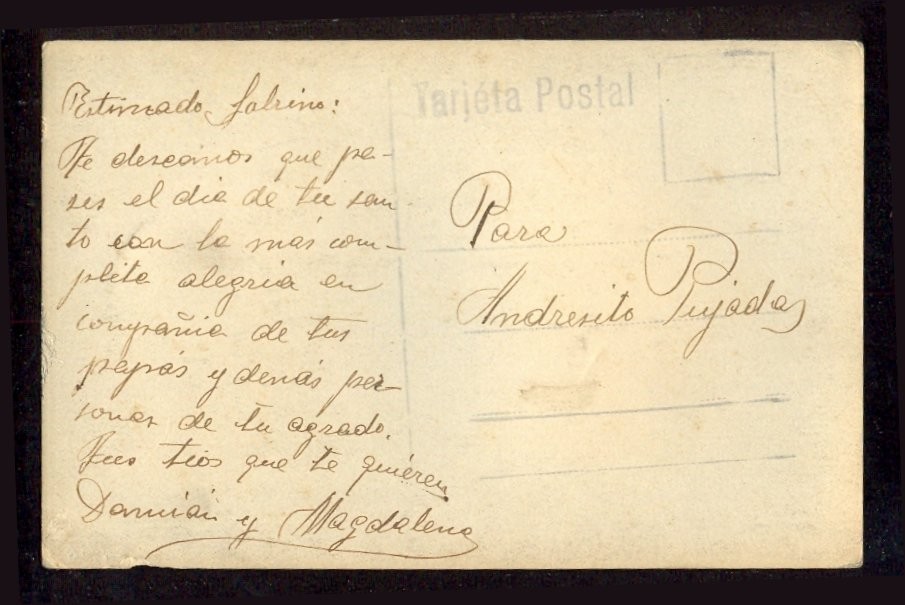 Estimado Sobrino:
Te deseamos que pa-
ses el dia de tu san-
to con la más com-
pleta alegria en
compañia de tus
papás y demás per-
sonas de tu agrado.
Tus tios que te quiéren
Damián y Magdalena
Tarjéta Postal
Para
Andresito Pujadas